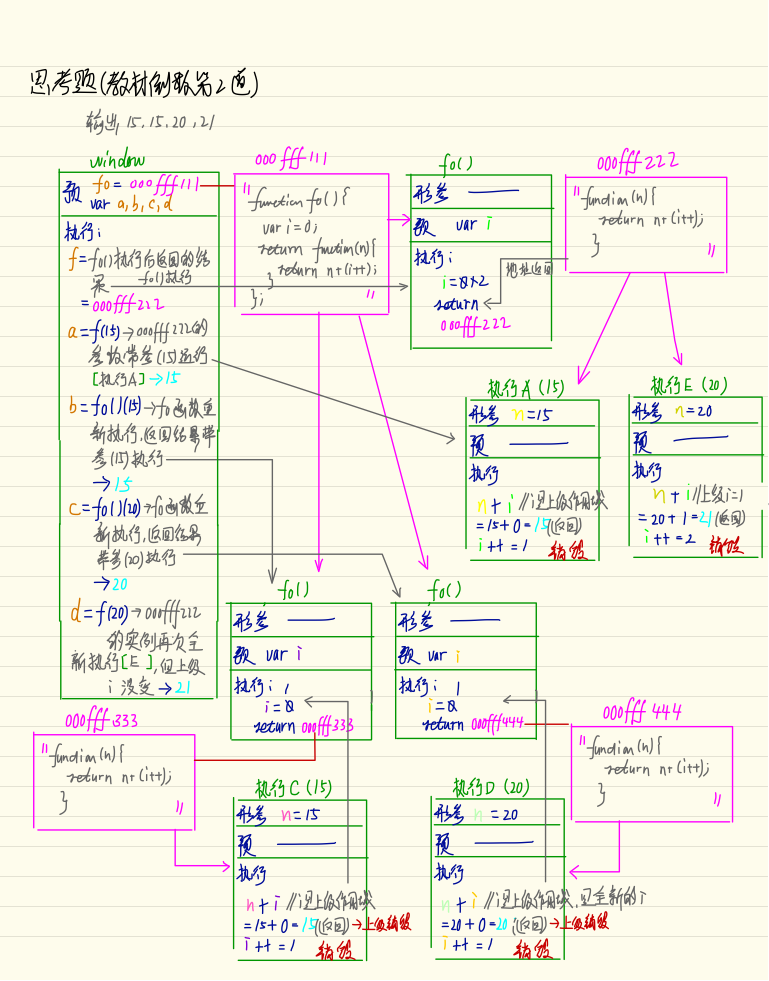 思考题(教材倒数第2道)
输出 15, 15, 20, 21
window
预 fo = 000fff111
var a,b,c,d
执行:
f=fo()执行后返回的结
果 fo()执行
=000fff222
a=f(15)→000fff222的
参数带参(15)运行
[执行A]→15
b=fo()(15)→fo函数重
新执行,返回结果带
参(15)执行
→15
c=fo()(20)→fo函数重
新执行,返回结果
带参(20)执行
→20
d=f(20)→000fff222
的实例再次全
新执行[E],但上级
i没变→21
000fff111
"function fo(){
var i=0;
return function(n){
return n+(i++);
}
}; "
fo()
形参 ——
预 var i
执行:
i=0 1 2
return
000fff222
地址返回
000fff222
"function(n){
return n+(i++);
} "
执行A (15)
形参 n=15
预 ——
执行
n+i //识上级作用域
=15+0=15(返回)
i++=1 销毁
执行E (20)
形参 n=20
预 ——
执行
n+i //上级i=1
=20+1=21(返回)
i++=2 销毁
fo()
形参 ——
预 var i
执行: 1
i=0
return 000fff333
fo()
形参 ——
预 var i
执行: 1
i=0
return 000fff444
000fff333
"function(n){
return n+(i++);
} "
000fff444
"function(n){
return n+(i++);
} "
执行C (15)
形参 n=15
预 ——
执行
n+i //识上级作用域
=15+0=15(返回)→上级销毁
i++=1 销毁
执行D (20)
形参 n=20
预 ——
执行
n+i //识上级作用域,是全新的i
=20+0=20(返回)→上级销毁
i++=1 销毁